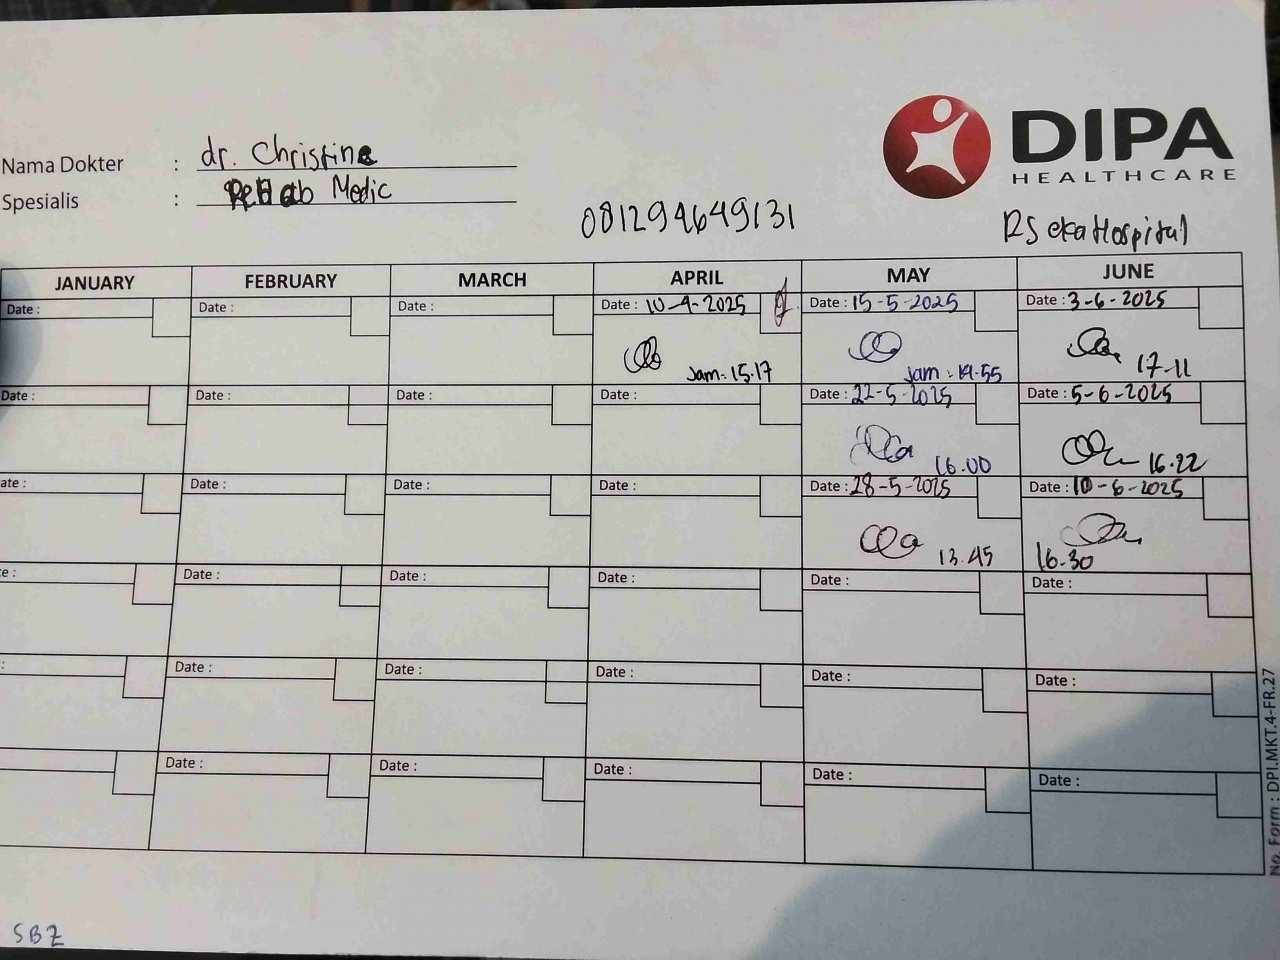 DIPA
HEALTHCARE
Nama Dokter : dr. Christine
Spesialis : Rehab Medic
081294649131
RS eka Hospital
JANUARY FEBRUARY MARCH APRIL MAY JUNE
Date : Date : Date : Date : 10-4-2025 Date : 15-5-2025 Date : 3-6-2025
Jam : 15.17 Jam : 14.55 17-11
Date : Date : Date : Date : Date : 22-5-2025 Date : 5-6-2025
16.00 16.22
ate : Date : Date : Date : Date : 28-5-2025 Date : 10-6-2025
13.45 16.30
e : Date : Date : Date : Date : Date :
: Date : Date : Date : Date : Date :
Date : Date : Date : Date : Date :
No. Form : DPI.MKT.4-FR.27
SBZ